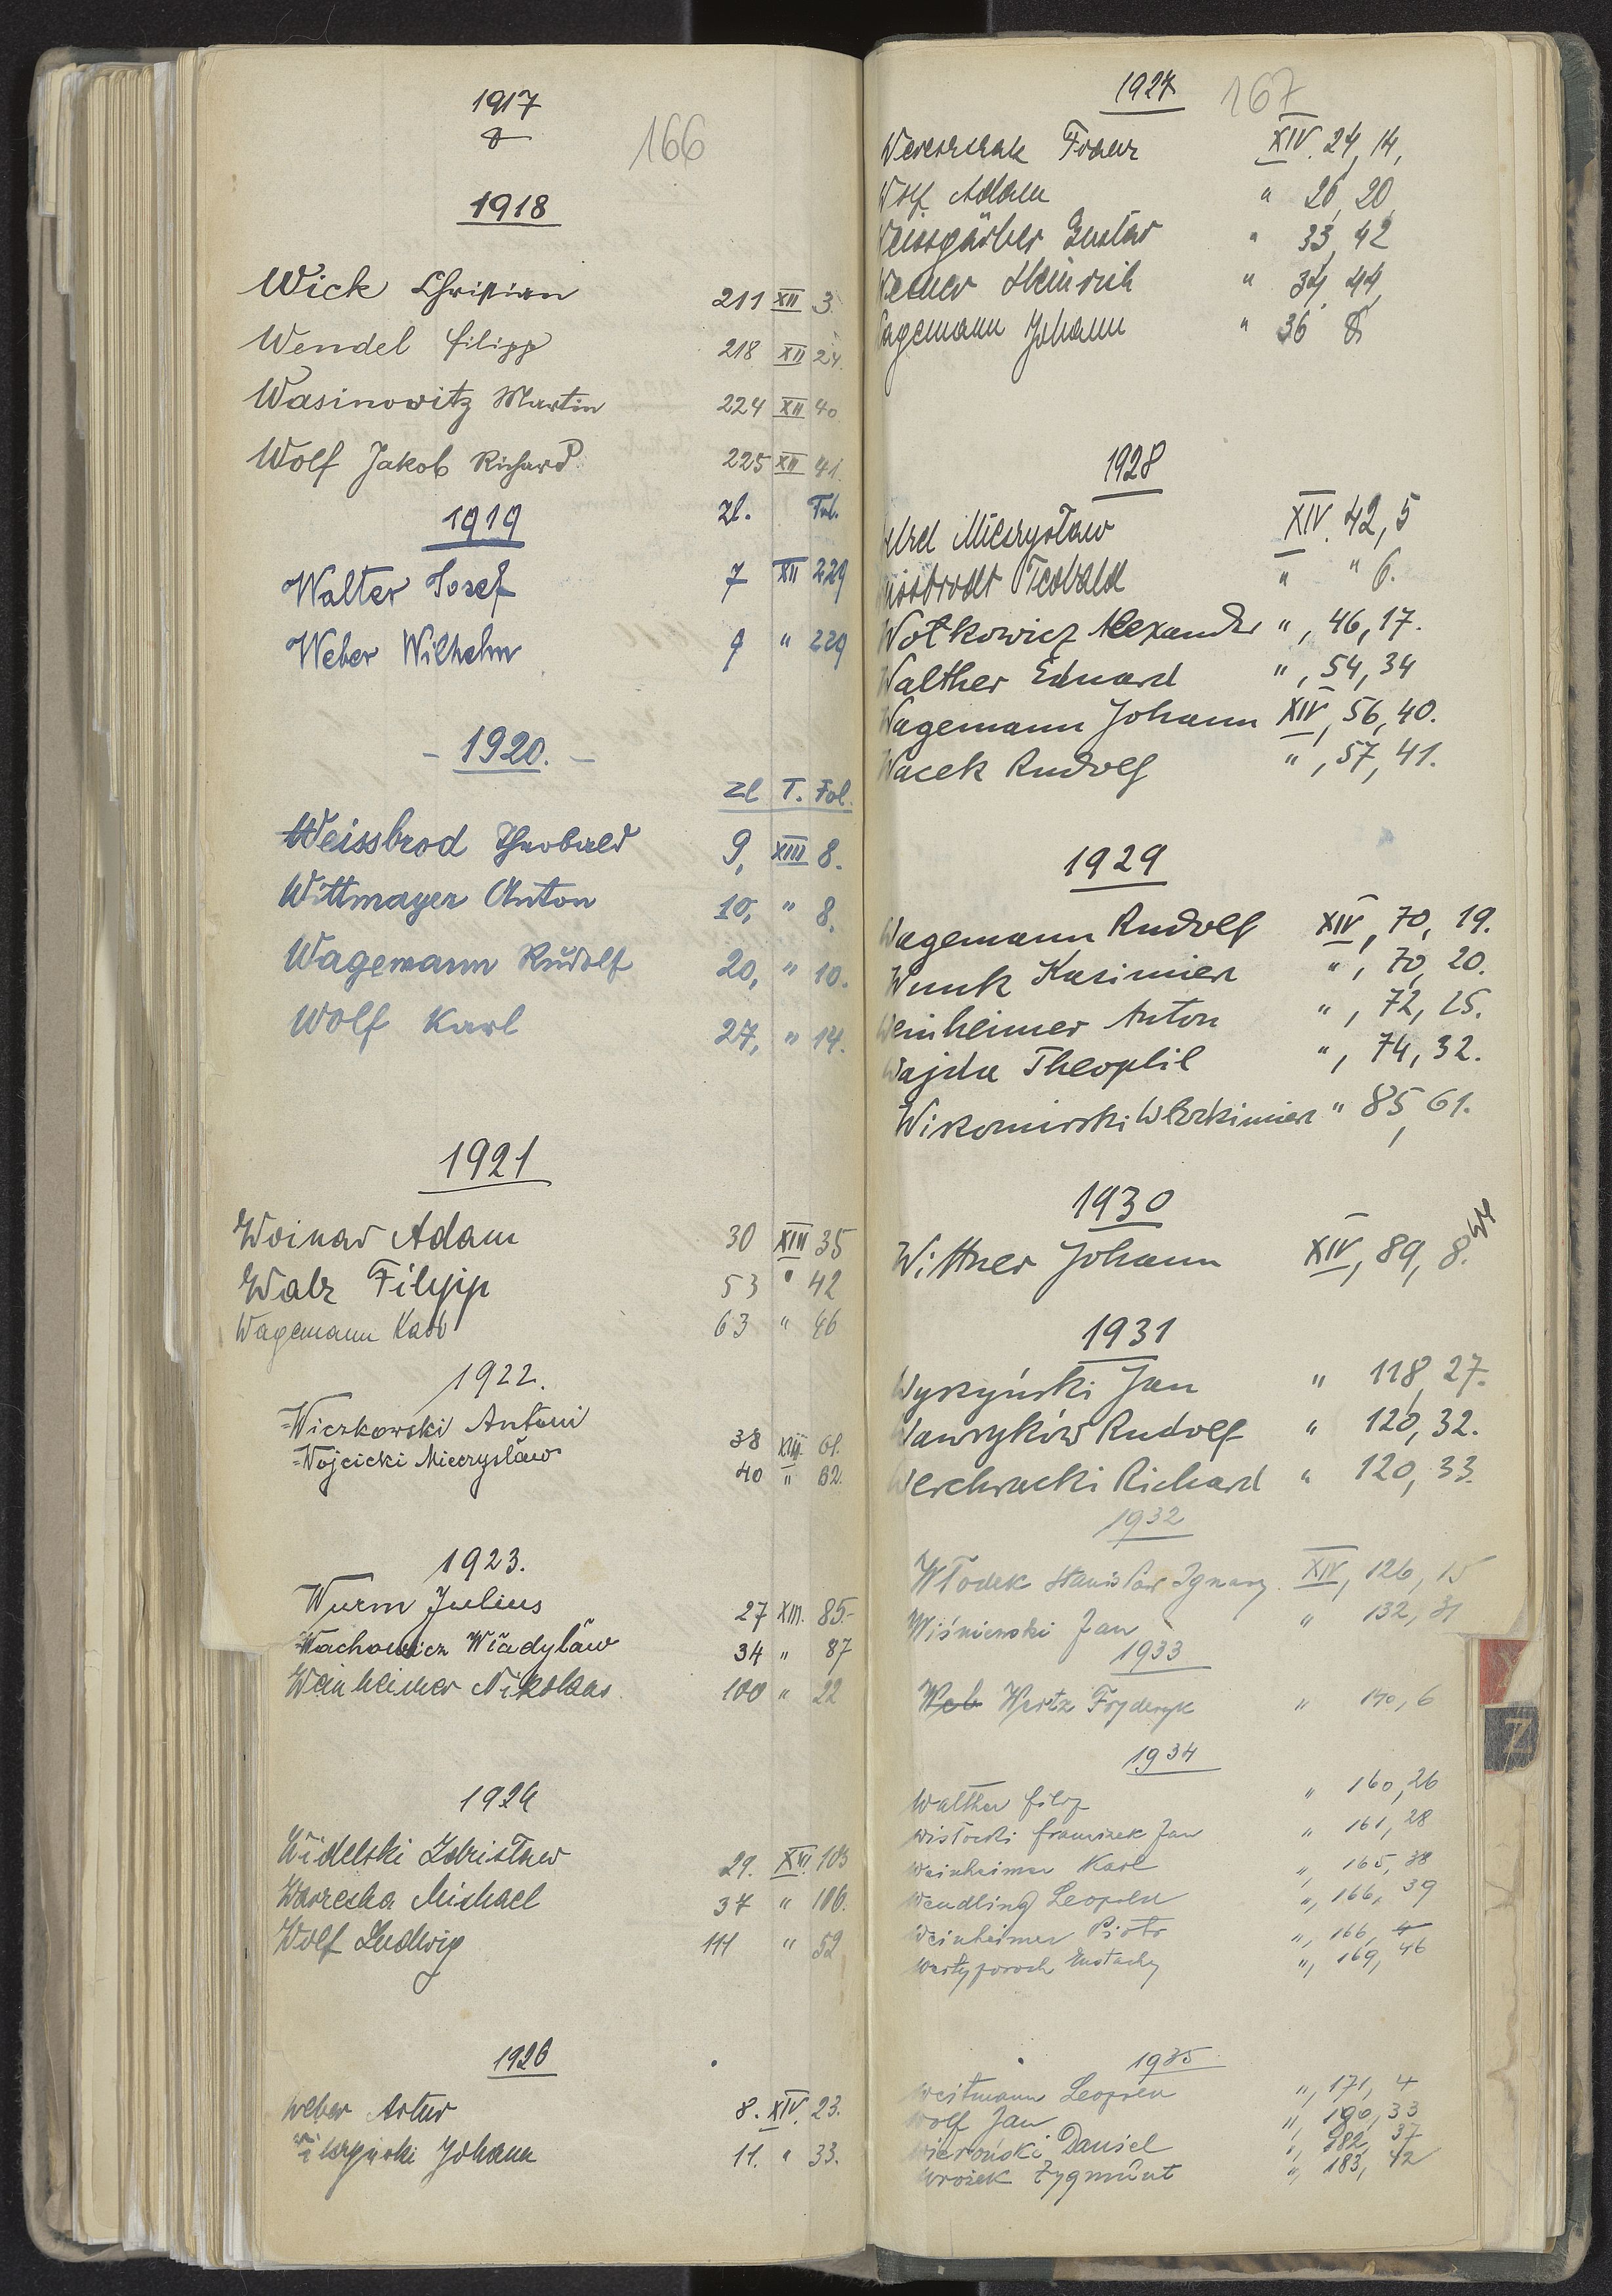 1917
166
1918
Wick Christian 211 XII 3.
Wendel Filipp 218 XII 24.
Wasinowitz Martin 224 XII 40
Wolf Jakob Richard 225 XII 41.
1919 Zl. Fol.
Walter Josef 7 XII 229
Weber Wilhelm 9 " 229
- 1920. -
Zl T. Fol.
Weissbrod Theobald 9, XIII 8.
Wittmayer Anton 10, " 8.
Wagemann Rudolf 20, " 10.
Wolf Karl 27, " 14.
1921
Woinar Adam 30 XIII 35
Walz Filipp 53 " 42
Wagemann Karl 63 " 46
1922.
Wiczkowski Antoni 38 XIII. 61.
Wojcicki Mieczysław 40 " 62.
1923.
Wurm Julius 27 XIII. 85.-
Wachowicz Władysław 34 " 87
Weinheimer Nikolaus 100 " 22
1924
Widelski Zdzisław 29. 103
Michael 37 " 106.
Wolf Ludwig 111 " 52
1926
Weber Artur 8. XIV. 23.
Johann 11. " 33.
1927
167
Franz XIV. 24, 14,
Wolf Adam " 26, 20
Weissgärber Gustav " 33, 42
Heinrich " 34, 44,
Wagemann Johann " 36
1928
Mieczysław XIV. 42, 5
Teobald " " 6.
Wołkowicz Alexander ", 46, 17.
Walther Eduard ", 54, 34
Wagemann Johann XIV, 56, 40.
Wacek Rudolf ", 57, 41.
1929
Wagemann Rudolf XIV, 70, 19.
Wunk Kasimier ", 70, 20.
Weinheimer Anton ", 72, 25.
Wajda Theophil ", 74, 32.
" 85, 61.
1930
Wittner Johann XIV, 89, 8.
1931
Wyszyński Jan " 118, 27.
Wawryków Rudolf " 120, 32.
Werchracki Richard " 120, 33.
1932
Włodek Stanisław Ignacy. XIV, 126, 15
Wiśniewski Jan " 132, 31
1933
Web Wertz Fryderyk " 140, 6
1934
Walther Filip " 160, 26
Wisłocki Franciszek Jan " 161, 28
Weinheimer Karl ", 165, 38
Wendling Leopold ", 166, 39
Weinheimer Piotr ", 166,
", 169, 46
1935
Leopold ", 171, 4
Wolf Jan ", 180, 33
Daniel ", 182, 37
Wrożek Zygmunt ", 183, 42